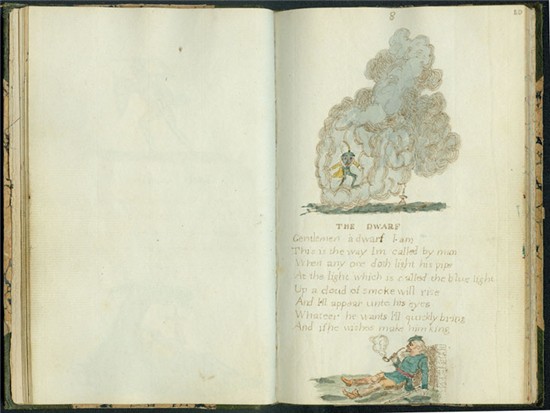 8
10
THE DWARF
Gentlemen a dwarf I am
This is the way Im called by man
When any one doth light his pipe
At the light which is called the blue light
Up a cloud of smoke will rise
And Ill appear unto his eyes
Whateer he wants Ill quickly bring
And if he wishes make him king